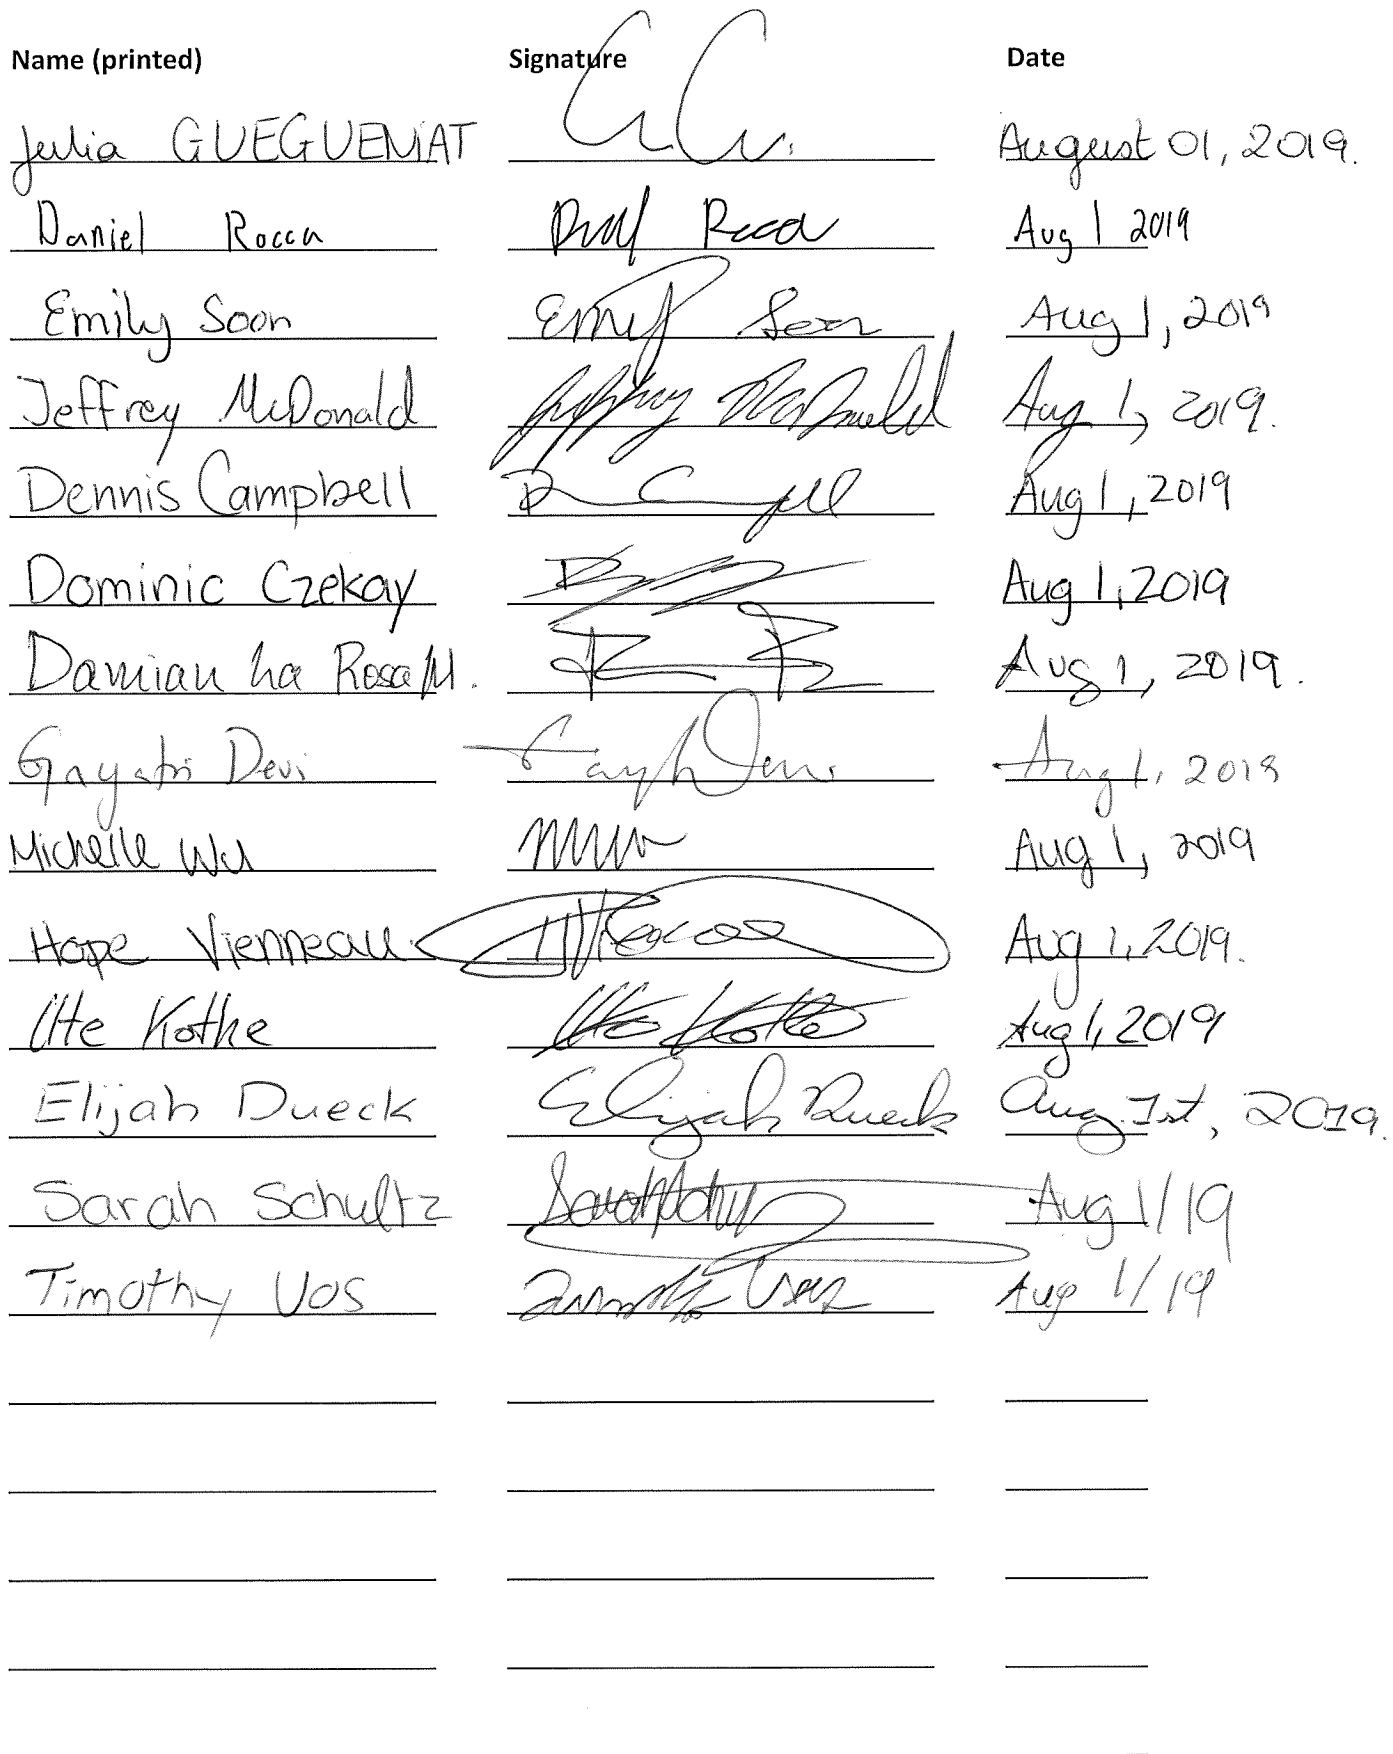 Name (printed) Signature Date
Julia GUEGUENIAT August 01, 2019.
Daniel Rocca Aug 1 2019
Emily Soon Emily Soon Aug 1, 2019
Jeffrey McDonald Jeffrey McDonald Aug 1, 2019.
Dennis Campbell Aug 1, 2019
Dominic Czekay Aug 1, 2019
Damian La Rosa M. Aug 1, 2019.
Gayatri Devi Aug 1, 2019
Michelle Wu Aug 1, 2019
Hope Vienneau Aug 1, 2019.
Ute Kothe Ute Kothe Aug 1, 2019
Elijah Dueck Elijah Dueck Aug. 1st, 2019.
Sarah Schultz Aug 1/19
Timothy Vos Aug 1/19